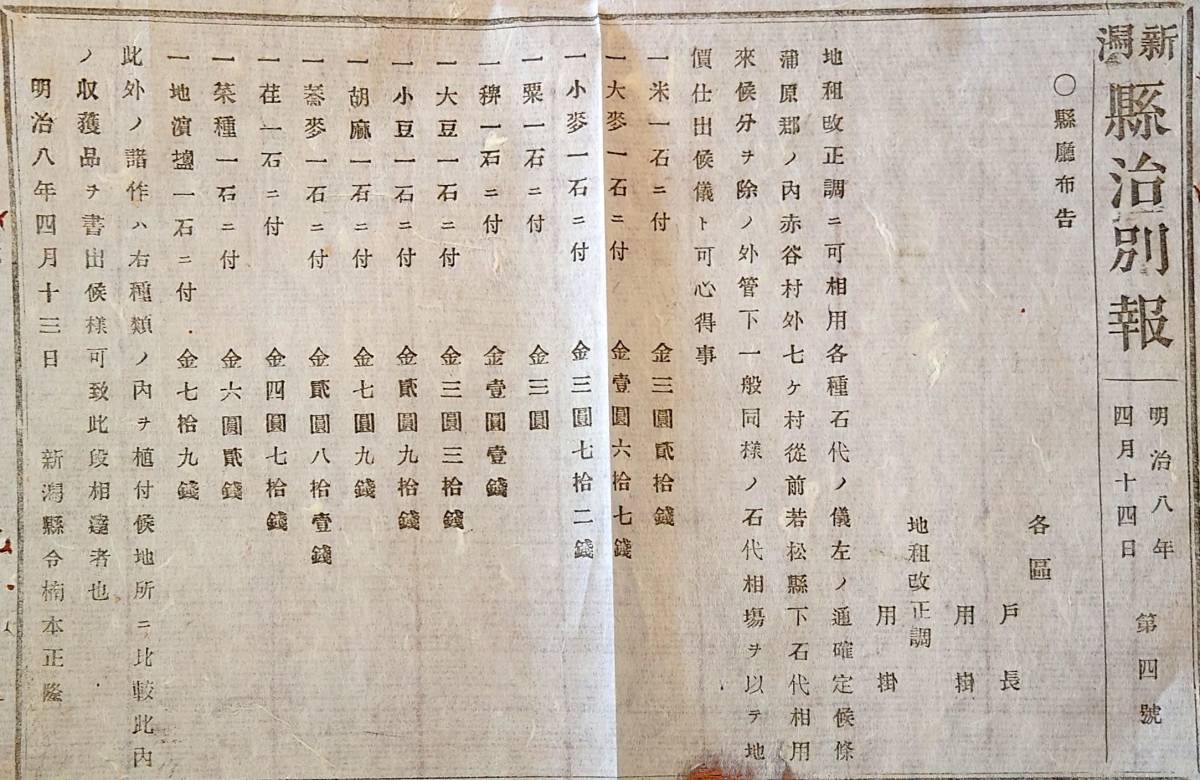 新潟縣治別報
明治八年
四月十四日
第四號
○縣廳布告
各區
戸長
用掛
地租改正調
用掛
地租改正調ニ可相用各種石代ノ儀左ノ通確定候條
蒲原郡ノ内赤谷村外七ケ村從前若松縣下石代相用
來候分ヲ除ノ外管下一般同様ノ石代相場ヲ以テ地
價仕出候儀ト可心得事
一米一石ニ付 金三圓貳拾錢
一大麥一石ニ付 金壹圓六拾七錢
一小麥一石ニ付 金三圓七拾二錢
一粟一石ニ付 金三圓
一稗一石ニ付 金壹圓壹錢
一大豆一石ニ付 金三圓三拾錢
一小豆一石ニ付 金貳圓九拾錢
一胡麻一石ニ付 金七圓九錢
一蕎麥一石ニ付 金貳圓八拾壹錢
一荏一石ニ付 金四圓七拾錢
一菜種一石ニ付 金六圓貳錢
一地濱塩一石ニ付 金七拾九錢
此外ノ諸作ハ右種類ノ内ヲ植付候地所ニ比較此内
ノ收獲品ヲ書出候様可致此段相達者也
明治八年四月十三日 新潟縣令楠本正隆